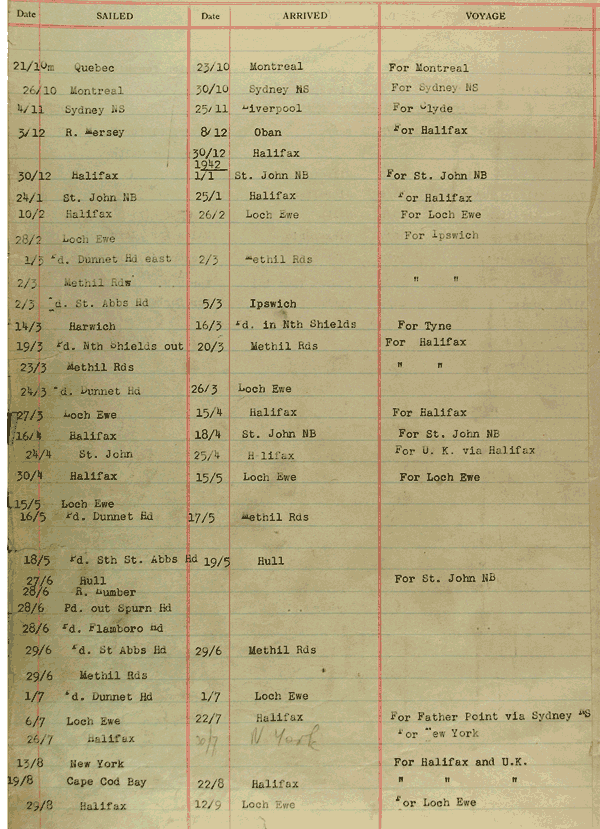 Date SAILED Date ARRIVED VOYAGE
21/10m Quebec 23/10 Montreal For Montreal
26/10 Montreal 30/10 Sydney NS For Sydney NS
4/11 Sydney NS 25/11 Liverpool For Clyde
3/12 R. Mersey 8/12 Oban For Halifax
30/12 Halifax
1942
30/12 Halifax 1/1 St. John NB For St. John NB
24/1 St. John NB 25/1 Halifax For Halifax
10/2 Halifax 26/2 Loch Ewe For Loch Ewe
28/2 Loch Ewe For Ipswich
1/3 Pd. Dunnet Hd east 2/3 Methil Rds
2/3 Methil Rds " "
2/3 Pd. St. Abbs Hd 5/3 Ipswich
14/3 Harwich 16/3 Pd. in Nth Shields For Tyne
19/3 Pd. Nth Shields out 20/3 Methil Rds For Halifax
23/3 Methil Rds " "
24/3 Pd. Dunnet Hd 26/3 Loch Ewe
27/3 Loch Ewe 15/4 Halifax For Halifax
16/4 Halifax 18/4 St. John NB For St. John NB
24/4 St. John 25/4 Halifax For U. K. via Halifax
30/4 Halifax 15/5 Loch Ewe For Loch Ewe
15/5 Loch Ewe
16/5 Pd. Dunnet Hd 17/5 Methil Rds
18/5 Pd. Sth St. Abbs Hd 19/5 Hull
27/6 Hull For St. John NB
28/6 R. Humber
28/6 Pd. out Spurn Hd
28/6 Pd. Flamboro Hd
29/6 Pd. St Abbs Hd 29/6 Methil Rds
29/6 Methil Rds
1/7 Pd. Dunnet Hd 1/7 Loch Ewe
6/7 Loch Ewe 22/7 Halifax For Father Point via Sydney NS
26/7 Halifax 30/7 N York For New York
13/8 New York For Halifax and U.K.
19/8 Cape Cod Bay 22/8 Halifax " " "
29/8 Halifax 12/9 Loch Ewe For Loch Ewe